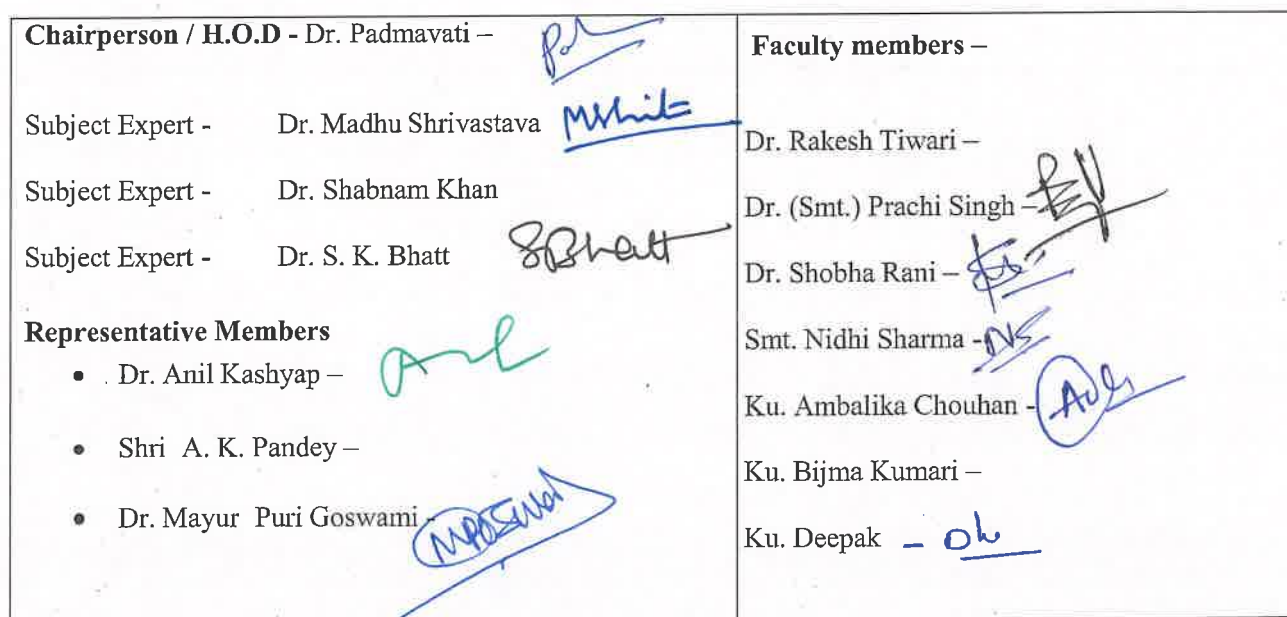 Chairperson / H.O.D - Dr. Padmavati –
Subject Expert - Dr. Madhu Shrivastava
Subject Expert - Dr. Shabnam Khan
Subject Expert - Dr. S. K. Bhatt SBhatt
Representative Members
• Dr. Anil Kashyap –
• Shri A. K. Pandey –
• Dr. Mayur Puri Goswami -
Faculty members –
Dr. Rakesh Tiwari –
Dr. (Smt.) Prachi Singh –
Dr. Shobha Rani –
Smt. Nidhi Sharma - NS
Ku. Ambalika Chouhan -
Ku. Bijma Kumari –
Ku. Deepak –